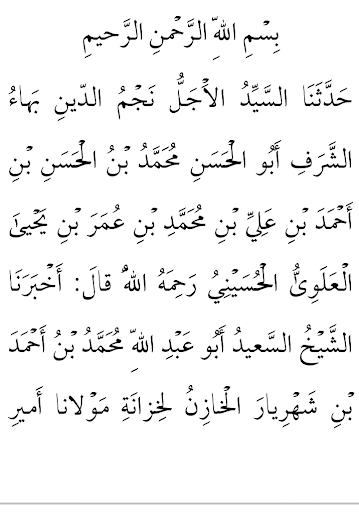 بِسْمِ اللهِ الرَّحْمنِ الرَّحيمِ
حَدَّثَنَا السَّيِّدُ الأَجَلُّ نَجْمُ الدّينِ بَهاءُ
الشَّرَفِ أَبُو الْحَسَنِ مُحَمَّدُ بْنُ الْحَسَنِ بْنِ
أَحْمَدَ بْنِ عَلِيِّ بْنِ مُحَمَّدِ بْنِ عُمَرَ بْنِ يَحْيىَ
الْعَلَوِىُّ الْحُسَيْنِيُ رَحِمَهُ اللهُ قالَ: أَخْبَرَنَا
الشَّيْخُ السَّعيدُ أَبُو عَبْدِ اللهِ مُحَمَّدُ بْنُ أَحْمَدَ
بْنِ شَهْرِيارَ الْخازِنُ لِخِزانَةِ مَوْلانا أَميرِ